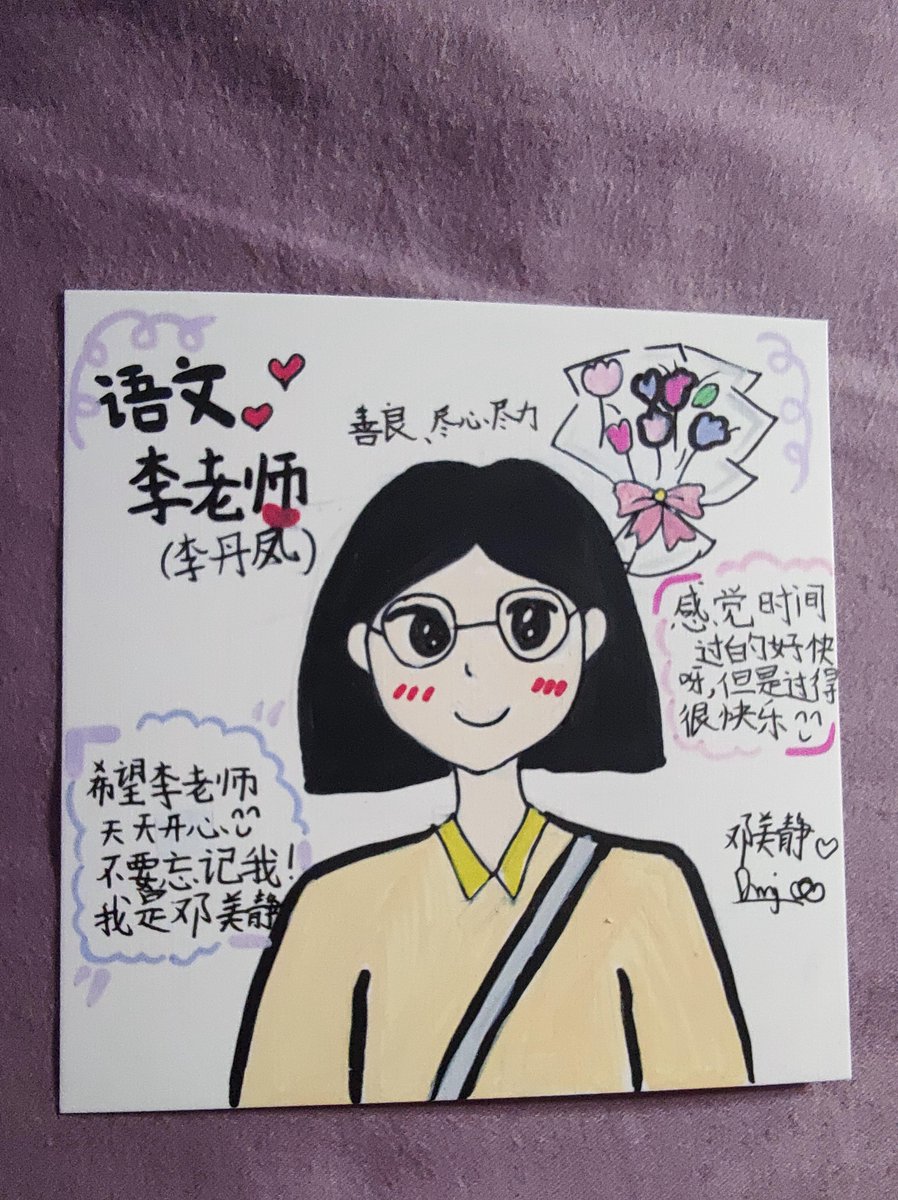 语文
李老师
(李丹凤)
善良、尽心尽力
感觉时间
过的好快
呀,但是过得
很快乐
希望李老师
天天开心
不要忘记我!
我是邓美静
邓美静
Dmj